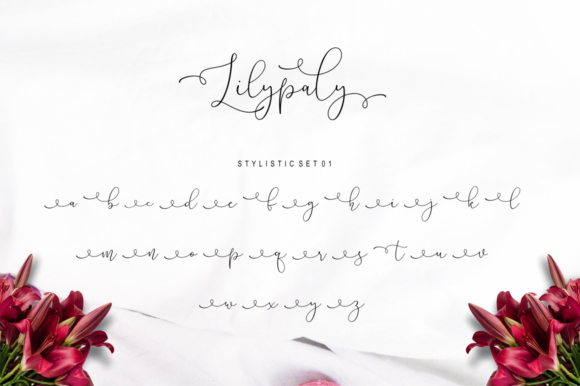 Lilypaly
STYLISTIC SET 01
a b c d e f g h i j k l
m n o p q r s t u v
w x y z